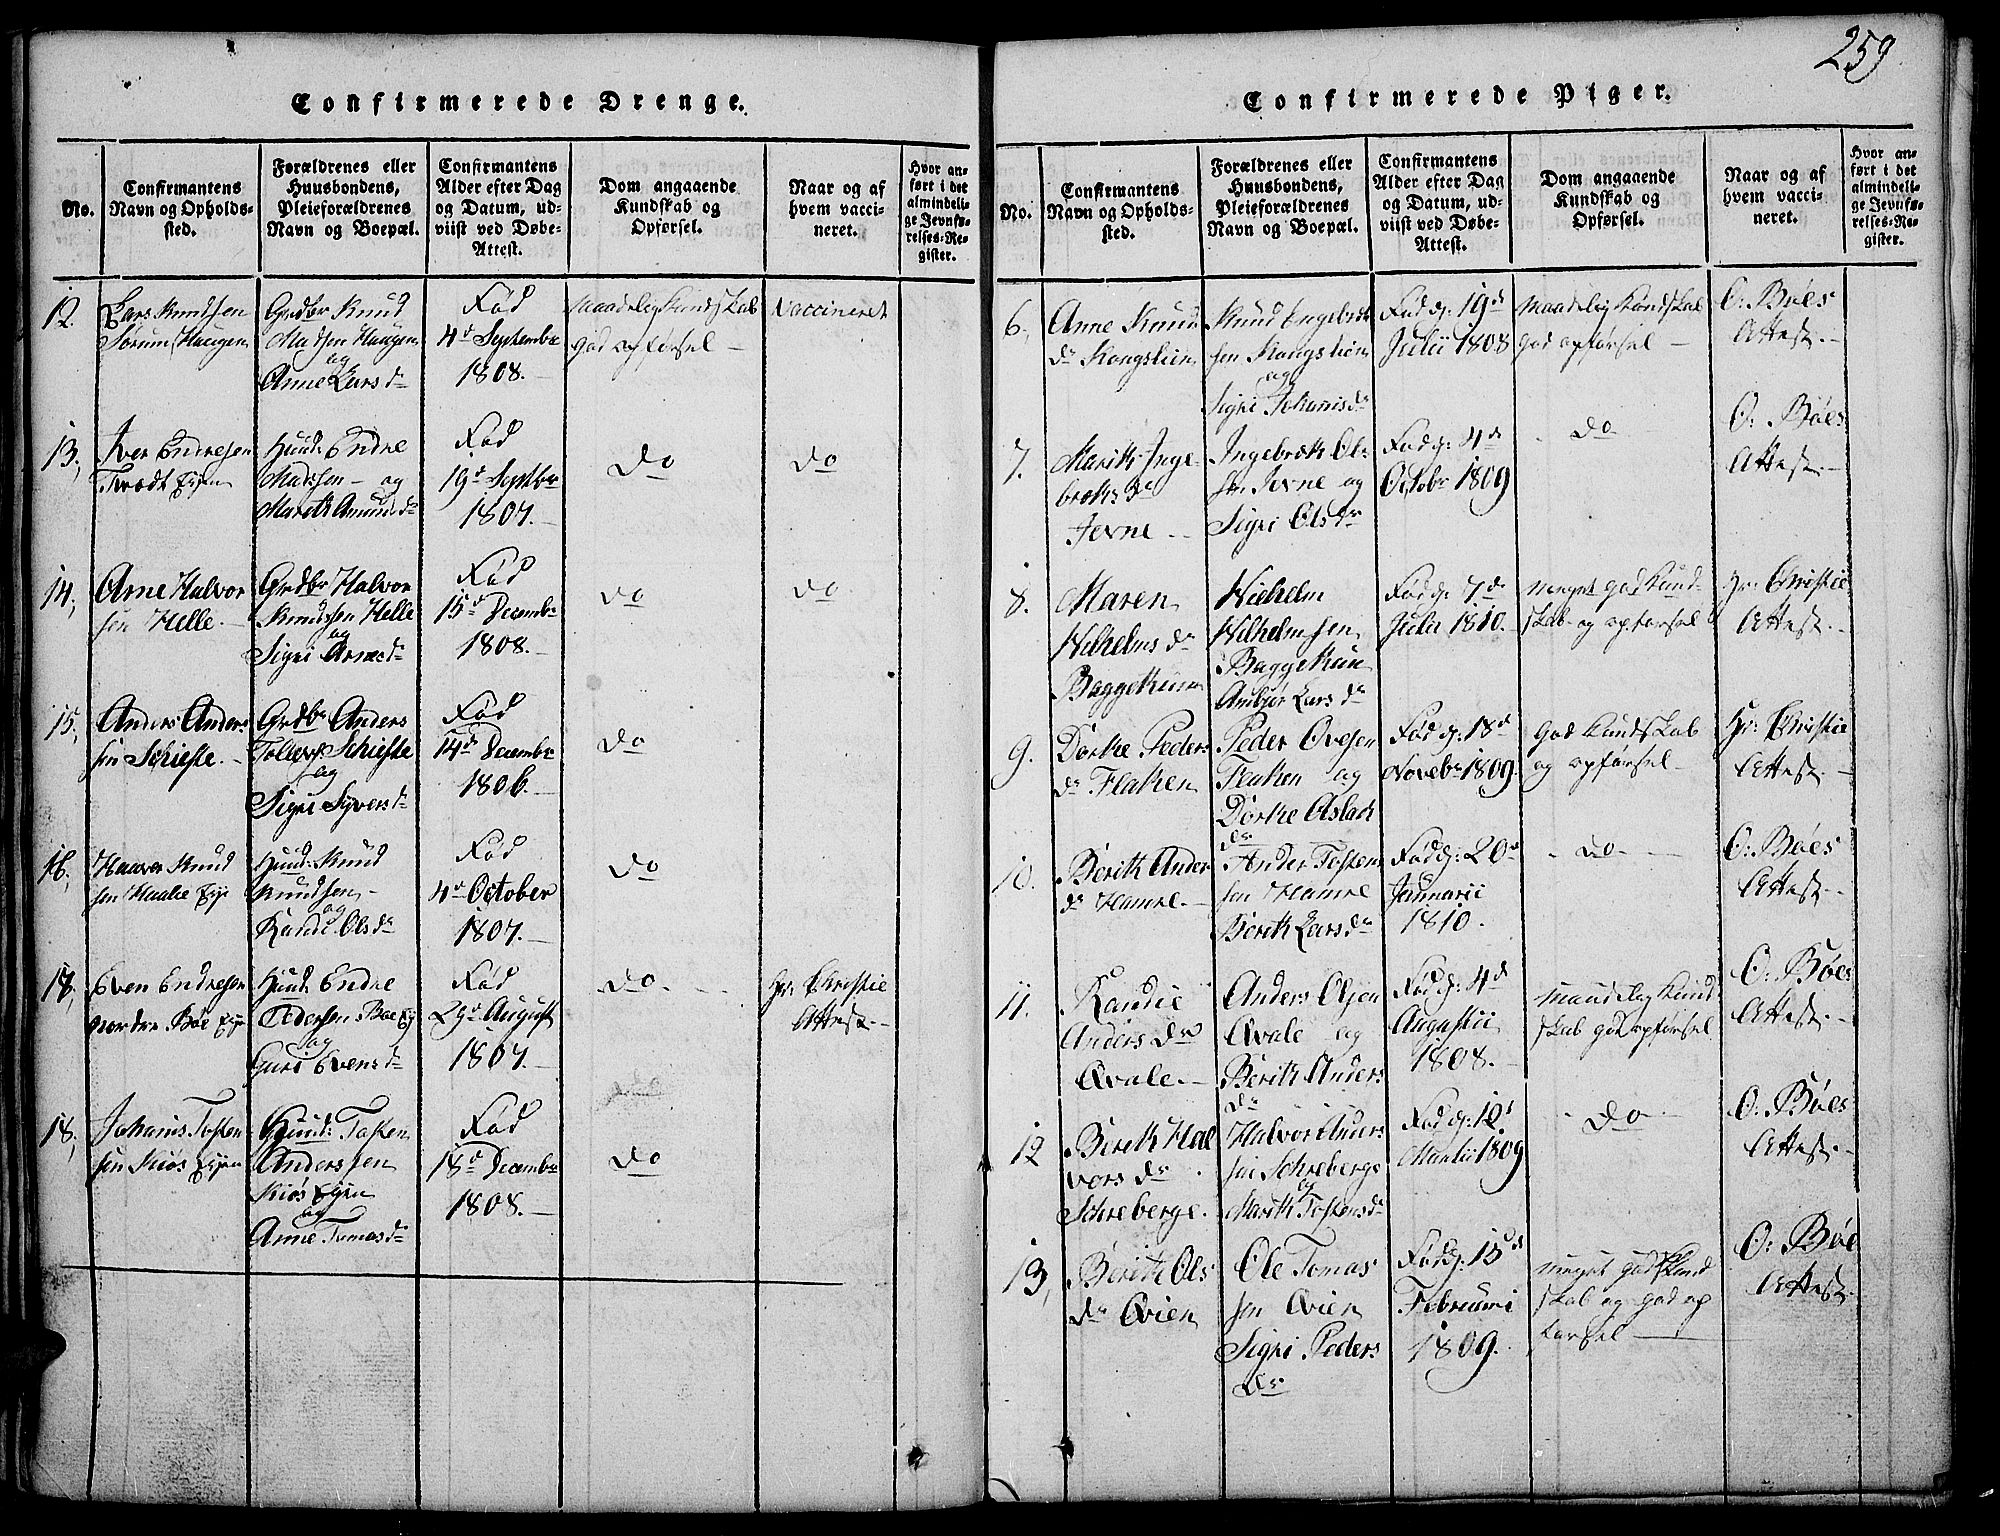 259
Confirmerede Drenge.
No.
Confirmantens
Navn og Opholds-
sted.
Forældrenes eller
Huusbondens,
Pleieforældrenes
Navn og Boepæl.
Confirmantens
Alder efter Dag
og Datum, ud-
viist ved Døbe-
Attest.
Dom angaaende
Kundskab og
Opførsel.
Naar og af
hvem vacci-
neret.
Hvor an-
ført i det
almindeli-
ge Jevnfø-
relses-Re-
gister.
12.
Lars Knudsen
Sørum Haugen
Grdbr Knud
Madsen Haugen
og
Anne Larsdr
Fød
4d Septembr
1808.
Maadelig Kundskab
god opførsel
Vaccineret
13,
Iver Endresen
Huusd: Endre
Madssen og
Marith Amunddr
Fød
19d Septbr
1807.
do
do
14,
Arne Halvor
sen Helle
Grdbr Halvor
Knudsen Helle
og
Sigri Arnedr
Fød
15d Decembr
1808.
do
do
15,
Anders Anders
sen Schiefte
Grdbr Anders
Tollefs: Schiefte
og
Sigri Syversdr
Fød
14d Decembr
1806.
do
16,
Haaver Knud
sen Haalie Eje
Huusd: Knud
Knudsen
og
Randi Olsdr
Fød
4d October
1807.
do
17,
Even Endresen
nordre Bøe Eje
Huusd: Endre
Pedersen Bøe Ej
og
Guri Evensdr
Fød
29d August
1807.
do.
Hr: Christie
Attest.
18,
Johanis Tosten
sen Kiøs Ejen
Huusd: Tosten
Anderssen
Kiøs Ejen
og
Anne Tomasdr
Fød
18d Decembr
1808.
do
Confirmerede Piger.
No.
Confirmantens
Navn og Opholds-
sted.
Forældrenes eller
Huusbondens,
Pleieforældrenes
Navn og Boepæl.
Confirmantens
Alder efter Dag
og Datum, ud-
viist ved Døbe-
Attest.
Dom angaaende
Kundskab og
Opførsel.
Naar og af
hvem vacci-
neret.
Hvor an-
ført i det
almindeli-
ge Jevnfø-
relses-Re-
gister.
6,
Anne Knud
dr Kongslien
Knud Engebrek
sen Kongslien
og
Sigri Johanisdr
Fød d: 19d
Julii 1808
Maadelig Kundskab
god opførsel
O: Bøes
Attest.
7.
Marith Inge
breksdr
Jevne
Ingebrek Ols
sen Jevne og
Sigri Olsdr
Fød d: 4d
Octobr 1809
do
O: Bøes
Attest.
8.
Maren
Wilhelmsdr
Baggethun
Wilhelm
Wilhelmsen
Baggethun
Ambjør Larsdr
Fød d: 7d
Julii 1810.
meget god Kund-
skab og opførsel
Hr: Christie
Attest.
9.
Dorthe Peders
dr Flaken
Peder Ovesen
Flaken og
Dorthe Aslak
dr
Fød d: 18d
Novebr 1809.
god Kundskab
og opførsel
Hr: Christie
Attest.
10.
Berith Ander
dr Hamre
Ander Tosten
sen Hamre
Berith Larsdr
Fød d: 20d
Januarii
1810.
do
O: Bøes
Attest.
11.
Randie
Andersdr
Qvale.
Anders Olsen
Qvale og
Berith Anders
dr
Fød d: 4d
Augustii
1808.
Maadelig Kund
skab god opførsel
O: Bøes
Attest.
12
Berith Hal
vorsdr
Schreberge.
Halvor Anders
sen Schreberge
og
Marith Tostensdr
Fød d: 12d
Martii 1809
do
O: Bøes
Attest.
13,
Berith Ols
dr Qvien
Ole Tomas
sen Qvien
Sigri Peders
dr
Fød d: 15d
Februarii
1809.
meget god Kund
skab og god op
førsel
O: Bøe
Attest.